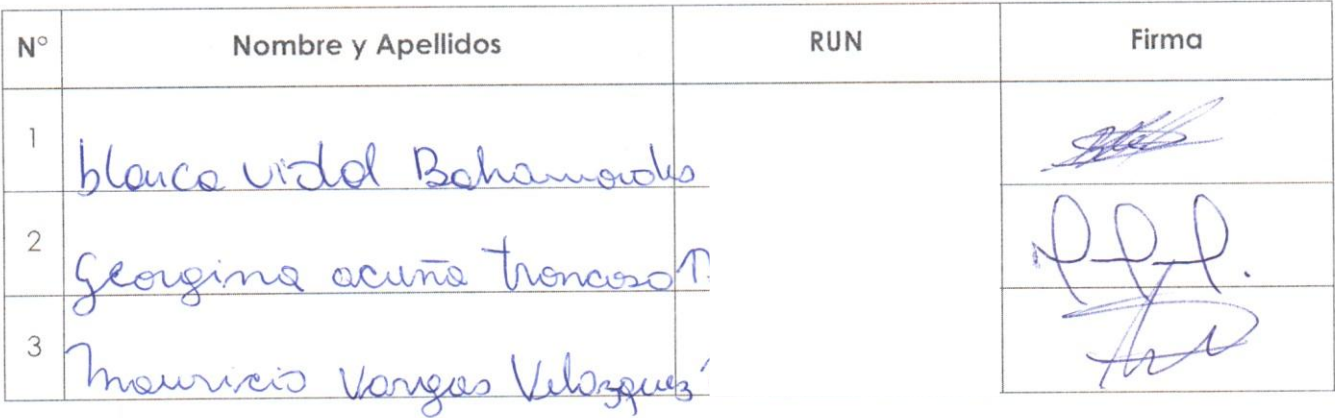 N° Nombre y Apellidos RUN Firma
1 blanca vidal Bahamondes
2 Georgina acuña troncoso
3 Mauricio Vargas Velazquez